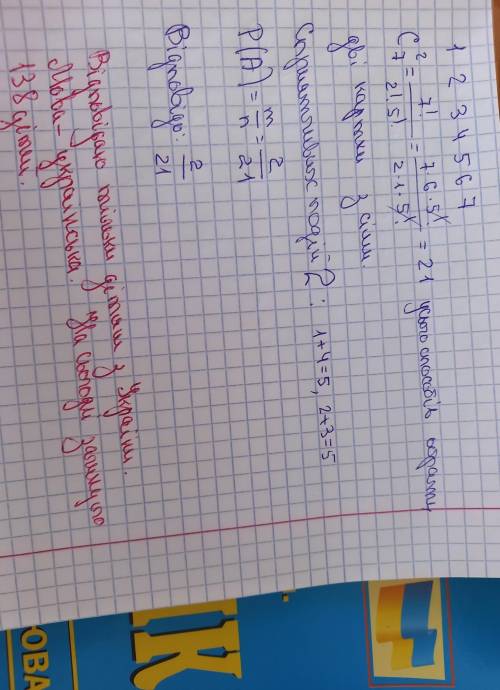 1 2 3 4 5 6 7
C₇² = 7!/(2!·5!) = 7·6·5!/(2·1·5!) = 21 усього способів обрати
дві картки з семи.
Сприятливих подій 2: 1+4=5, 2+3=5
P(A) = m/n = 2/21
Відповідь: 2/21
Відповідаю тільки дітям з України.
Мова – українська. На сьогодні загинуло
138 дітей.
ИК
ОВА